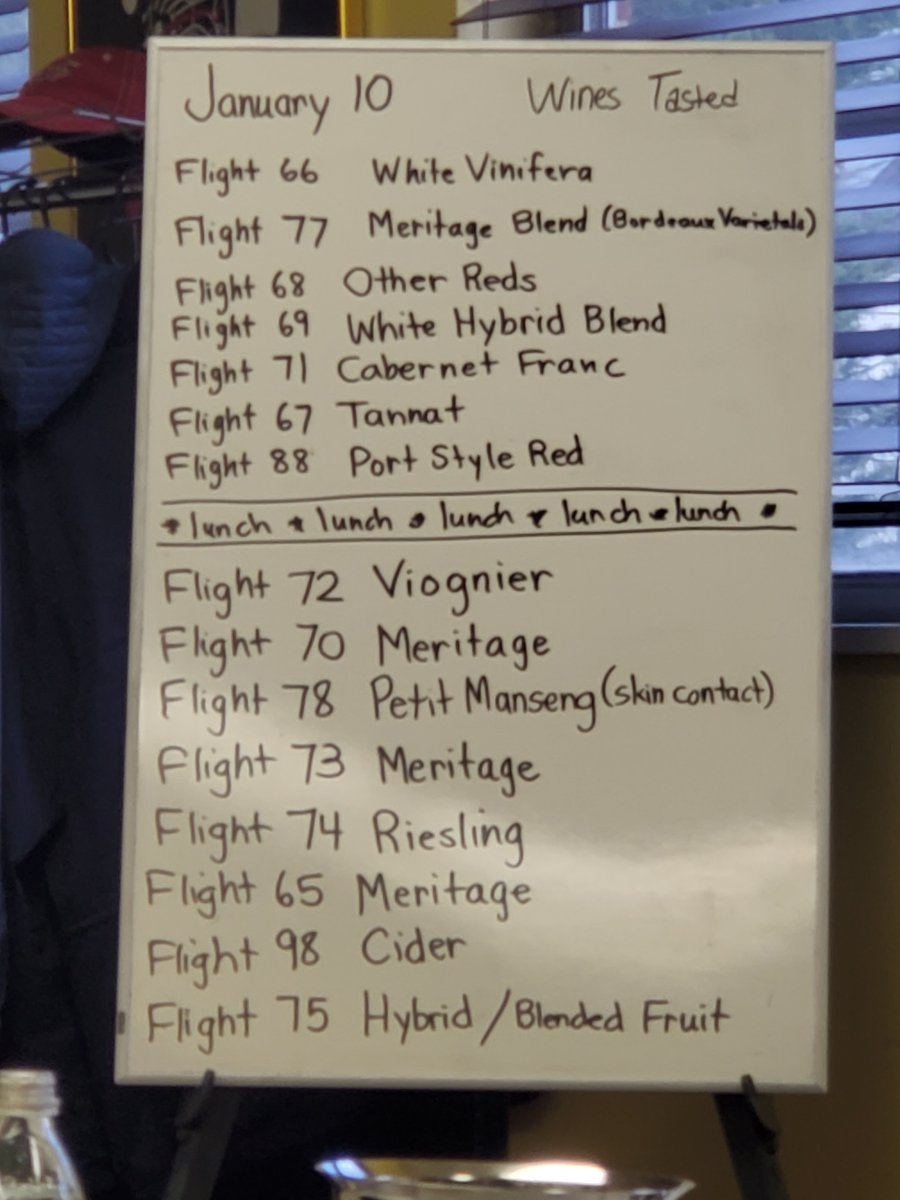 January 10 Wines Tasted
Flight 66 White Vinifera
Flight 77 Meritage Blend (Bordeaux Varietals)
Flight 68 Other Reds
Flight 69 White Hybrid Blend
Flight 71 Cabernet Franc
Flight 67 Tannat
Flight 88 Port Style Red
* lunch * lunch • lunch ▾ lunch • lunch •
Flight 72 Viognier
Flight 70 Meritage
Flight 78 Petit Manseng (skin contact)
Flight 73 Meritage
Flight 74 Riesling
Flight 65 Meritage
Flight 98 Cider
Flight 75 Hybrid / Blended Fruit